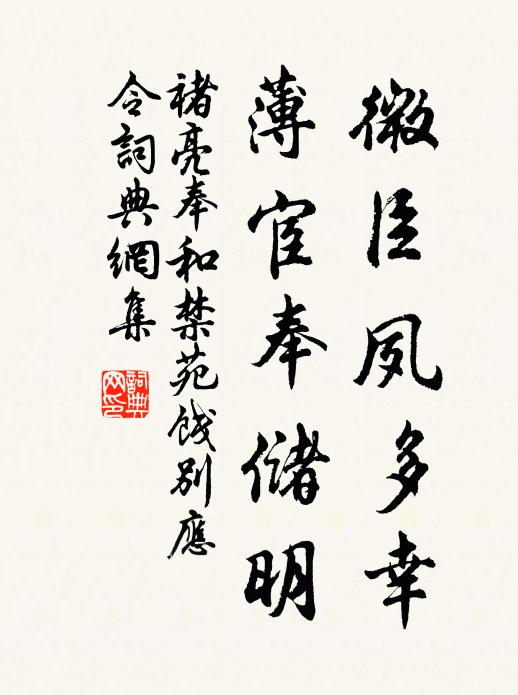 微臣夙多幸
薄宦奉儲明
褚亮奉和禁苑餞別應
令詞典網集
詞典
网印